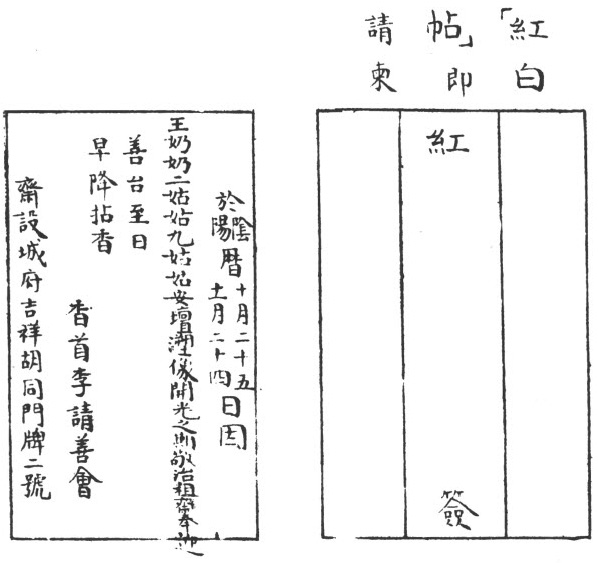 「紅白
帖」即
請柬
紅簽
於陰陽曆十月二十五十一月二十四日因
王奶奶二姑姑九姑姑安壇像開光之期敬治粗齋奉迎
善台至日
早降拈香
香首李請善會
齋設城府吉祥胡同門牌二號